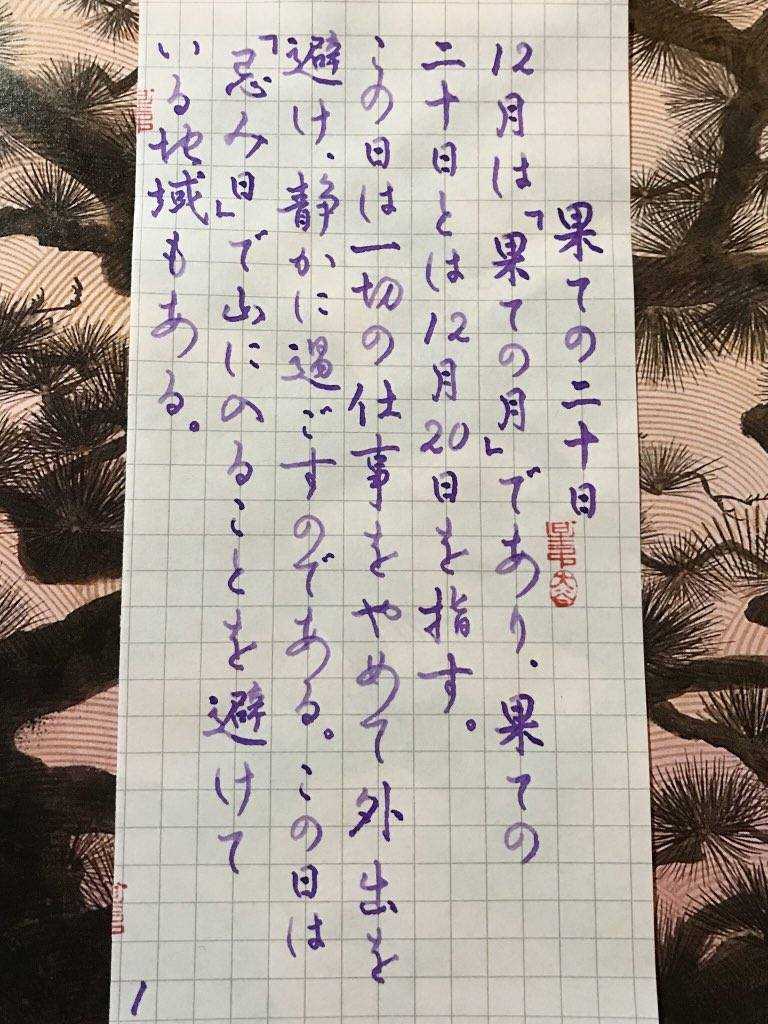 果ての二十日
12月は「果ての月」であり、果ての
二十日とは12月20日を指す。
この日は一切の仕事をやめて外出を
避け、静かに過ごすのである。この日は
「忌み日」で山にのることを避けて
いる地域もある。
1